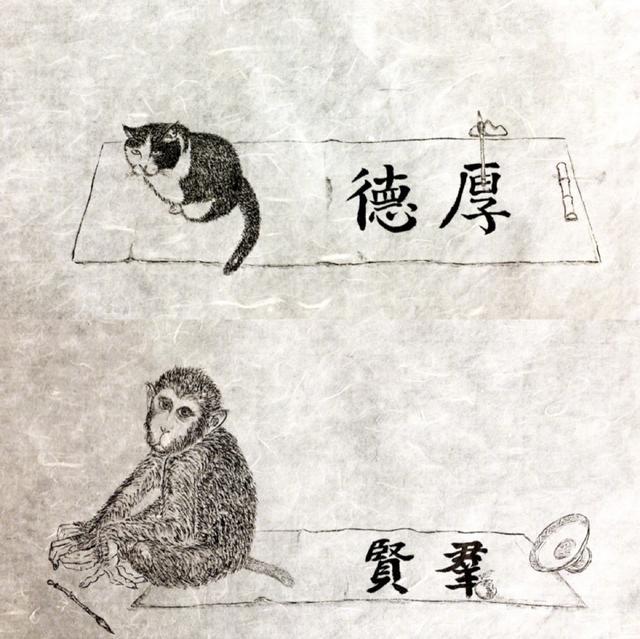 厚德
羣賢